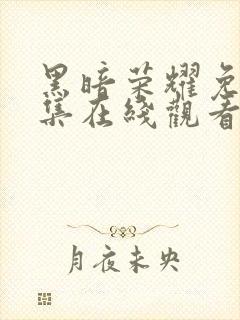 黑暗荣耀免
集在线觀看
月夜未央